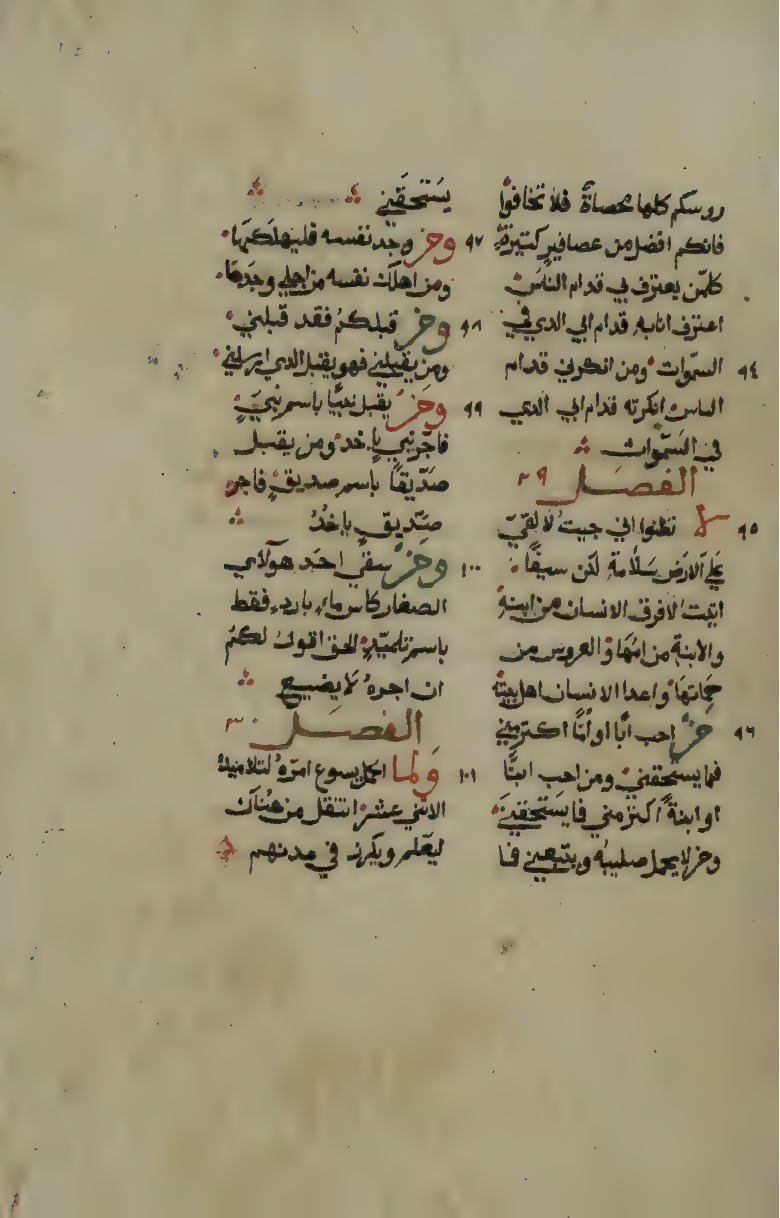 روسكم كلها محصاة فلا تخافوا
فانكم افضل من عصافير كتيرة
كل من يعترف بي قدام الناس
اعترف انا به قدام ابي الدي في
٩٤ السموات ومن انكرني قدام
الناس انكرته قدام ابي الدي
في السموات
الفصل ٢٩
٩٥ لا تظنوا اني جيت لالقي
على الارض سلامة لكن سيفا
اتيت لافرق الانسان من ابنه
والابنة من امها والعروس من
حماتها واعدا الانسان اهل بيته
٩٦ من احب ابا او اما اكتر مني
فما يستحقني ومن احب ابنا
او ابنة اكتر مني فما يستحقني
ومن لا يحمل صليبه ويتبعني فما
يستحقني
٩٧ ومن وجد نفسه فليهلكها
ومن اهلك نفسه من اجلي وجدها
٩٨ ومن قبلكم فقد قبلني
ومن يقبلني فهو يقبل الدي ارسلني
٩٩ ومن يقبل نبيا باسم نبي
فاجر نبي ياخد ومن يقبل
صديقا باسم صديق فاجر
صديق ياخد
١٠٠ ومن سقي احد هولاي
الصغار كاس ماء بارد فقط
باسم تلميد الحق اقول لكم
ان اجره لا يضيع
الفصل ٣٠
١٠١ ولما اكمل يسوع امره لتلاميده
الاثني عشر انتقل من هناك
ليعلم ويكرز في مدنهم